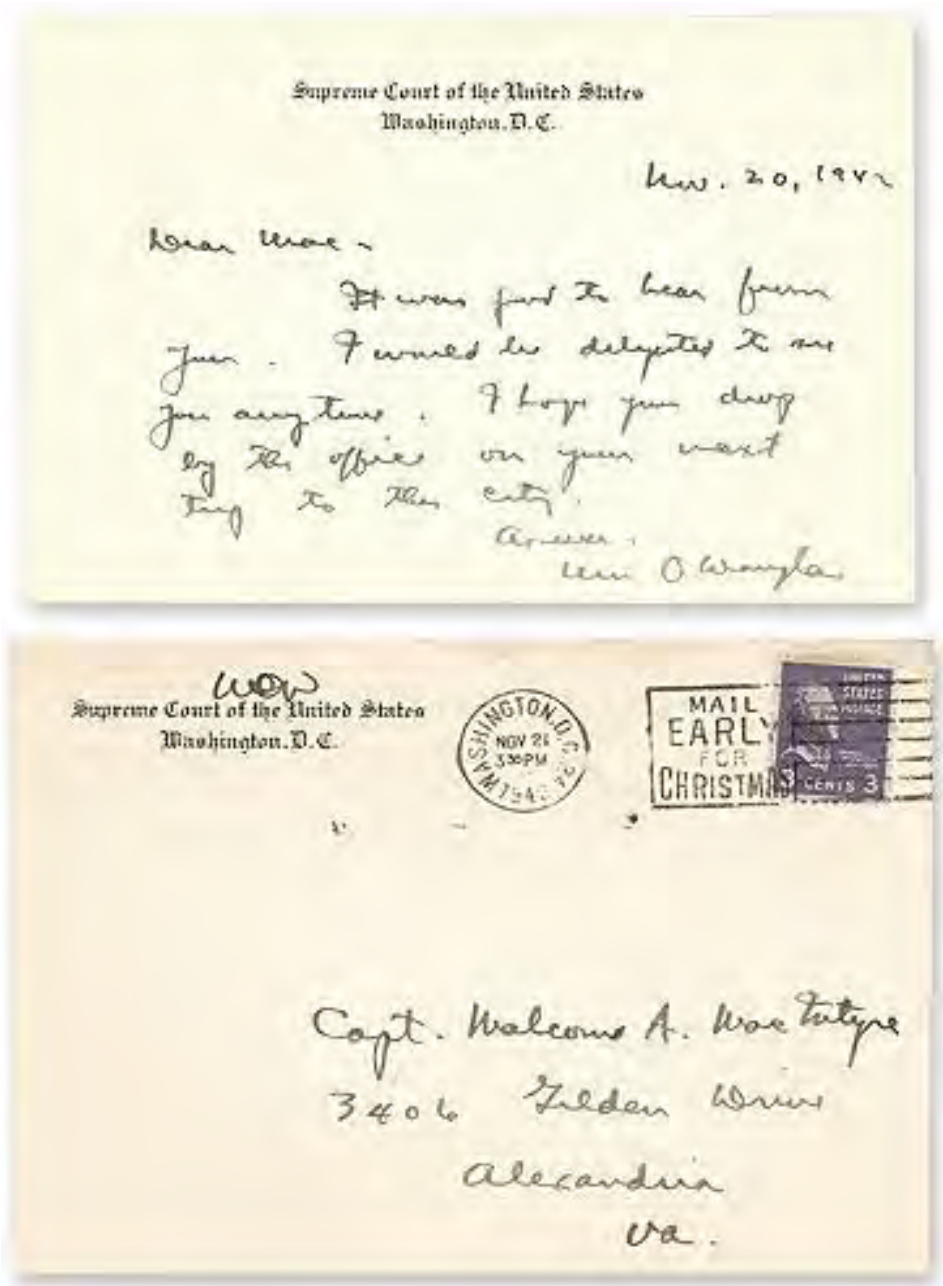 Supreme Court of the United States
Washington, D. C.
Nov. 20, 1942
Dear Mac -
It was good to hear from
you. I would be delighted to see
you any time. I hope you drop
by the office on your next
trip to this city.
As ever,
Wm O Douglas
WOD
Supreme Court of the United States
Washington, D. C.
WASHINGTON, D.C.
NOV 21
3 30 PM
MAIL
EARLY
FOR
CHRISTMAS
UNITED
STATES
POSTAGE
3 CENTS 3
Capt. Malcolm A. MacIntyre
3406 Gilden Drive
Alexandria
Va.